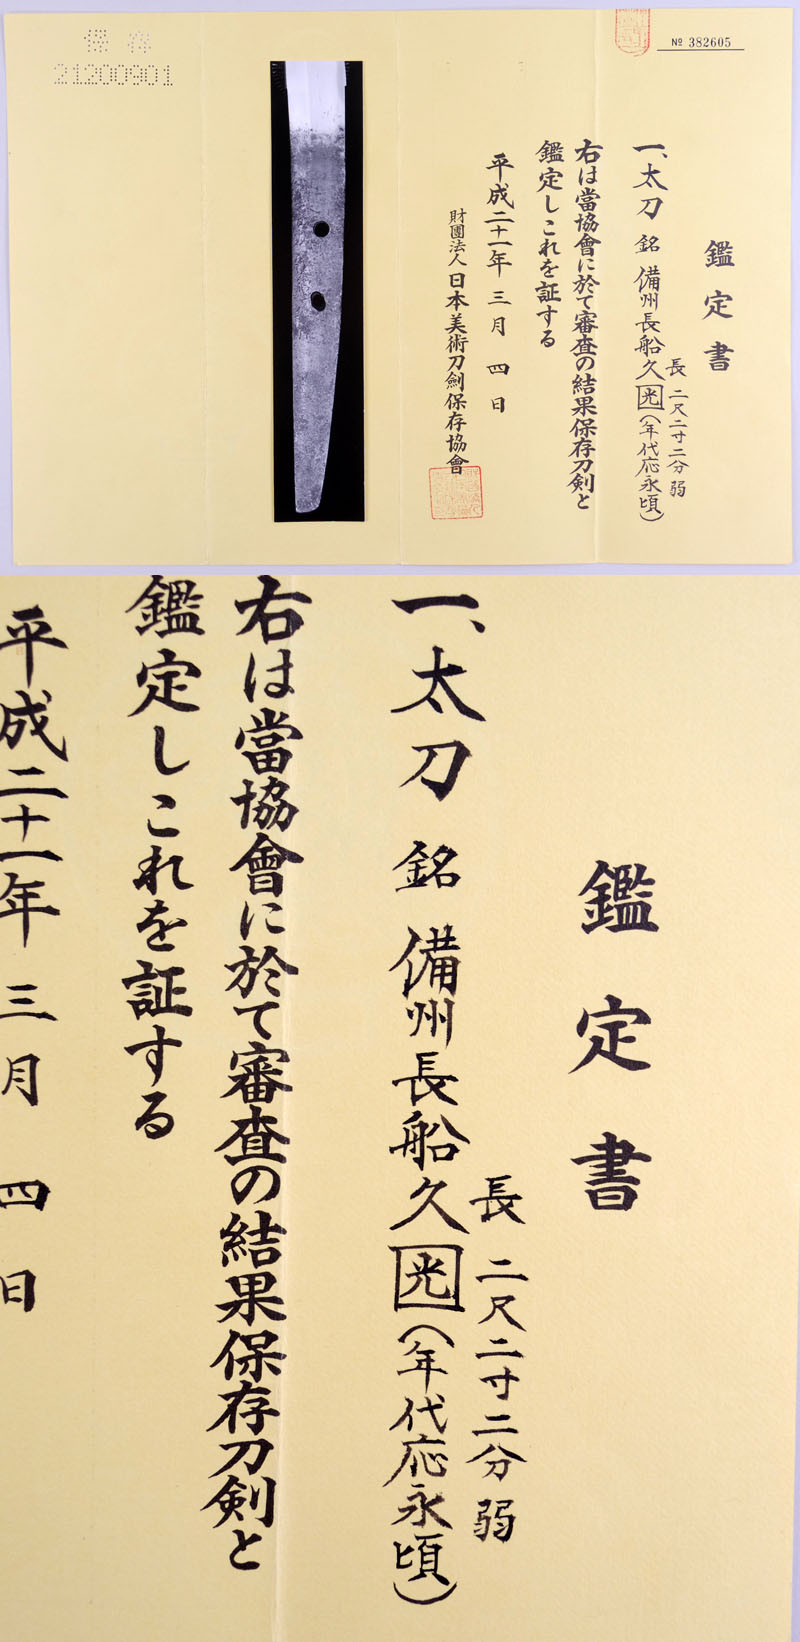 保存
21200901
№ 382605
鑑定書
一、太刀 銘 備州長船久光（年代応永頃）
長 二尺二寸二分弱
右は當協會に於て審査の結果保存刀剣と
鑑定しこれを証する
平成二十一年 三月 四日
財團法人 日本美術刀劍保存協會
鑑定書
一、太刀 銘 備州長船久光（年代応永頃）
長 二尺二寸二分弱
右は當協會に於て審査の結果保存刀剣と
鑑定しこれを証する
平成二十一年 三月 四日